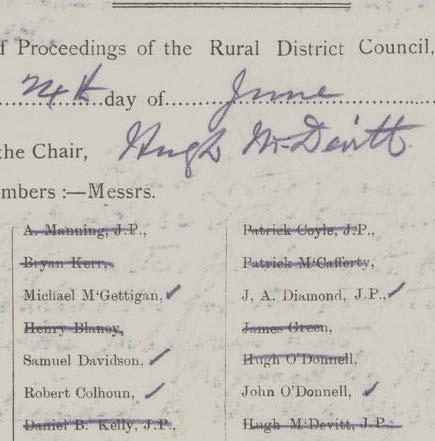 f Proceedings of the Rural District Council,
24th day of June
the Chair, Hugh McDevitt
mbers :—Messrs.
A. Manning, J.P., Patrick Coyle, J.P.,
Bryan Kerr, Patrick M'Cafferty,
Michael M'Gettigan, J. A. Diamond, J.P.,
Henry Blaney, James Green,
Samuel Davidson, Hugh O'Donnell,
Robert Colhoun, John O'Donnell,
Daniel B. Kelly, J.P., Hugh M'Devitt, J.P.